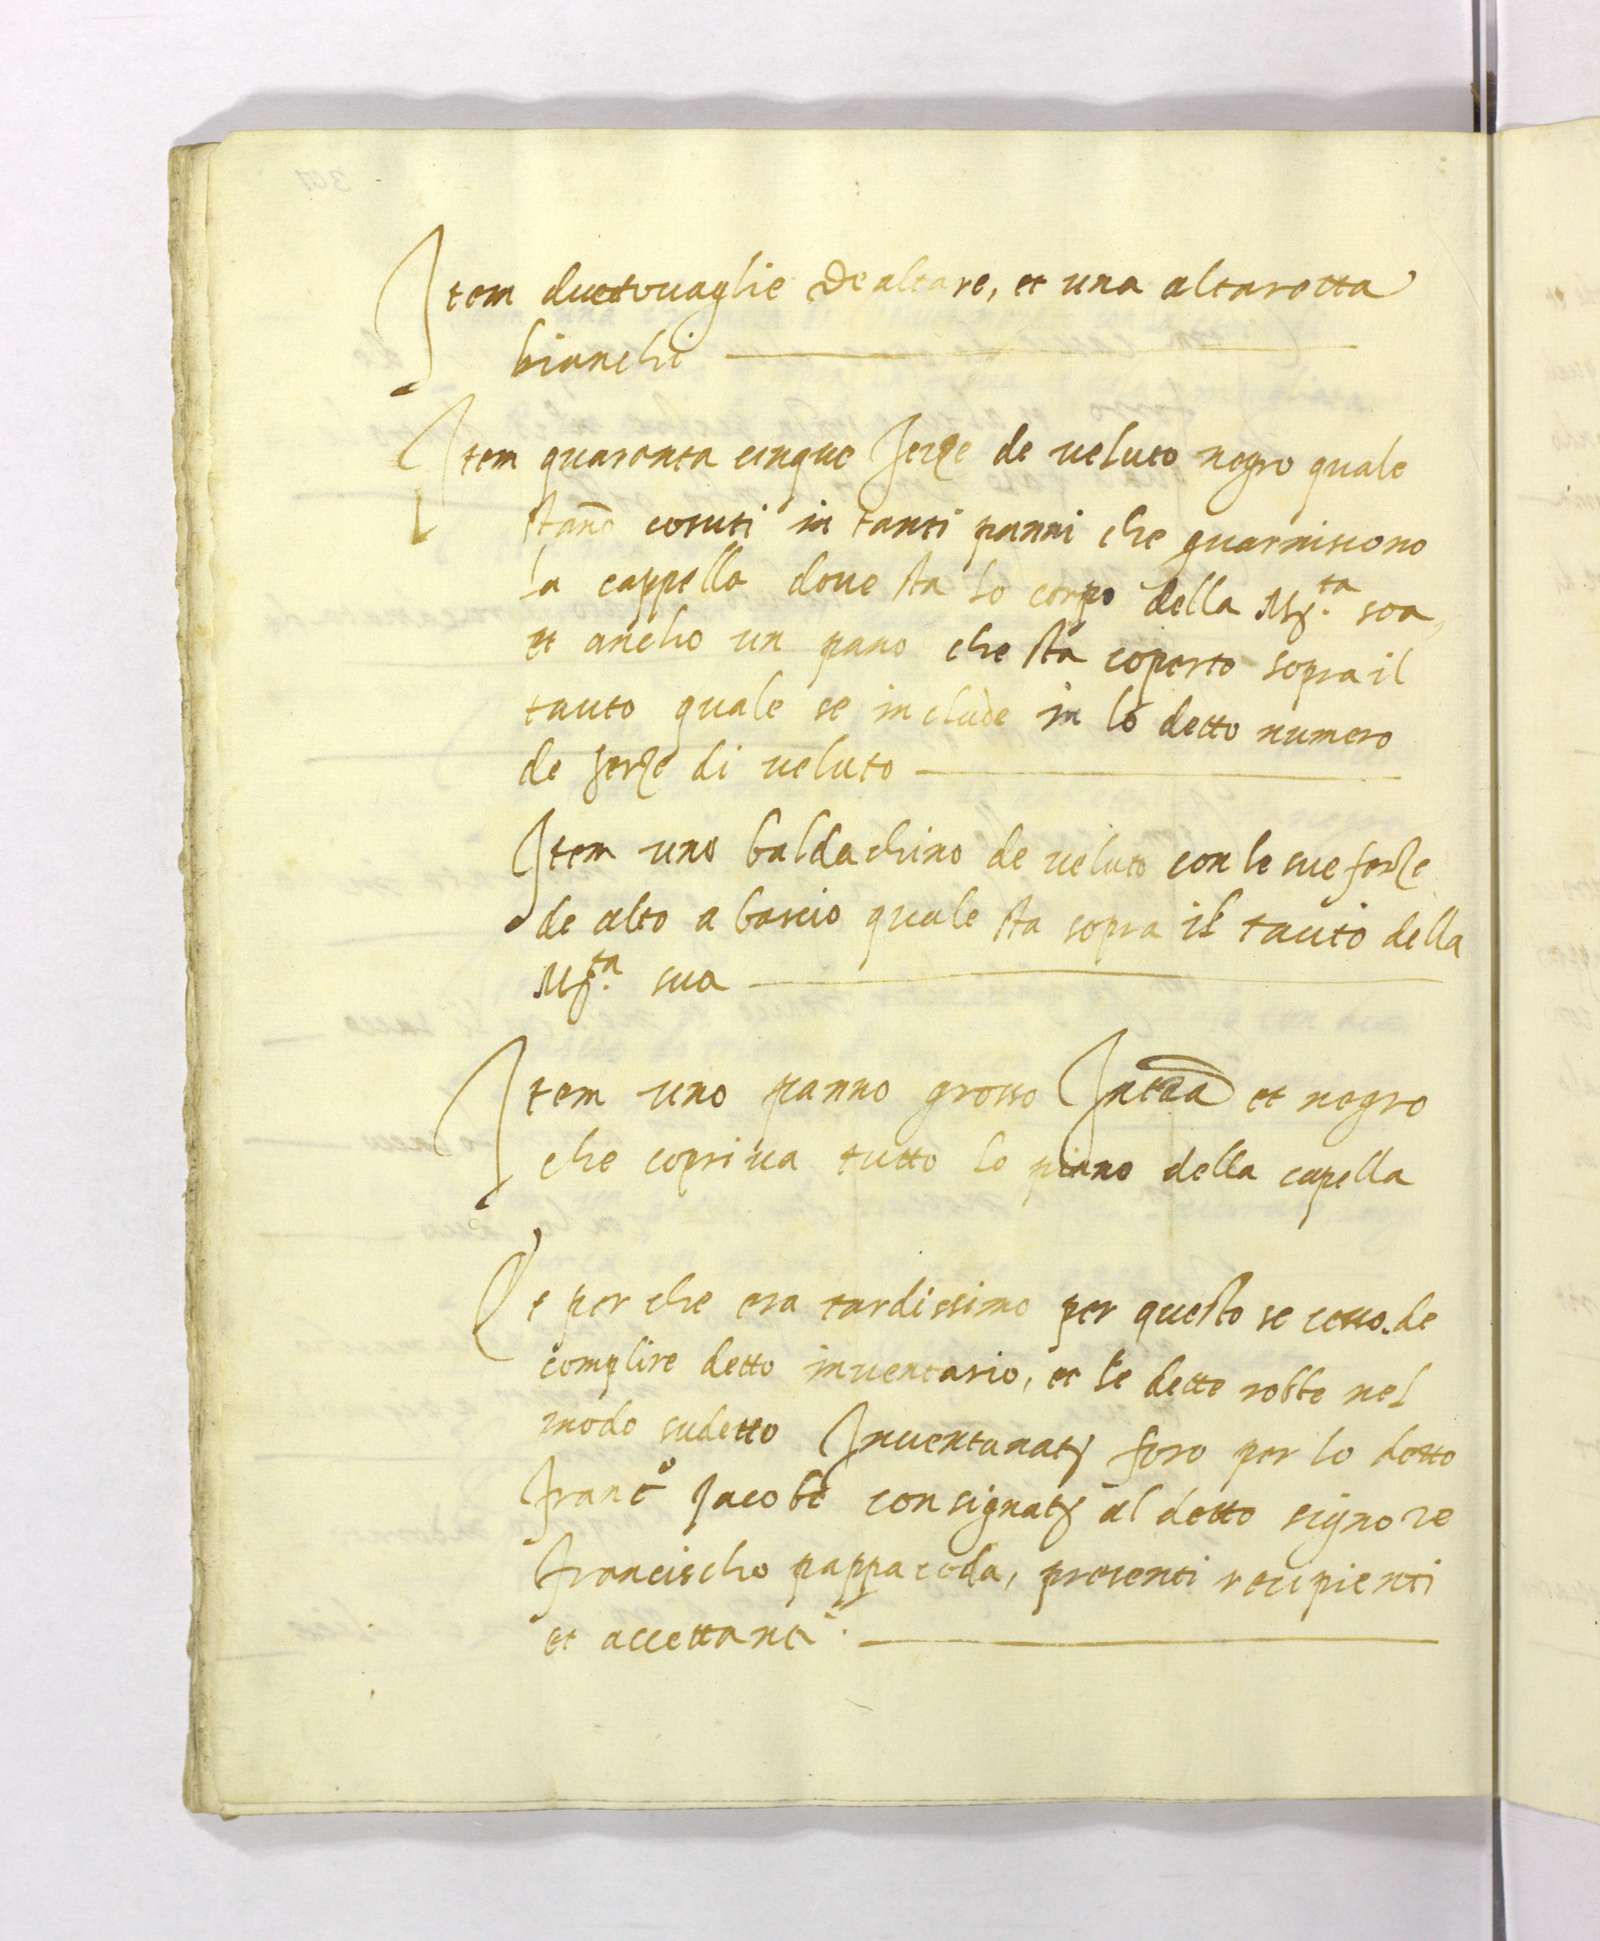 Item due tovaglie de altare, et una altaretta
bianchi
Item quaranta cinque ferze de veluto negro quale
stanno cosuti in tanti panni che guarniscono
la cappella dove sta lo corpo della M.ta soa,
et ancho un pano che sta coperto sopra il
tauto quale se include in lo detto numero
de ferze di veluto
Item uno baldachino de veluto con le sue ferze
de alto a bascio quale sta sopra il tauto della
M.ta sua
Item uno panno grosso et negro
che copriva tutto lo piano della capella
Et per che era tardissimo per questo se cesso de
complire detto inventario, et le dette robbe nel
modo sudetto Inventariati foro per lo detto
franc.o Jacobo consignati al detto signore
francischo pappacoda, presenti recipienti
et accettanti